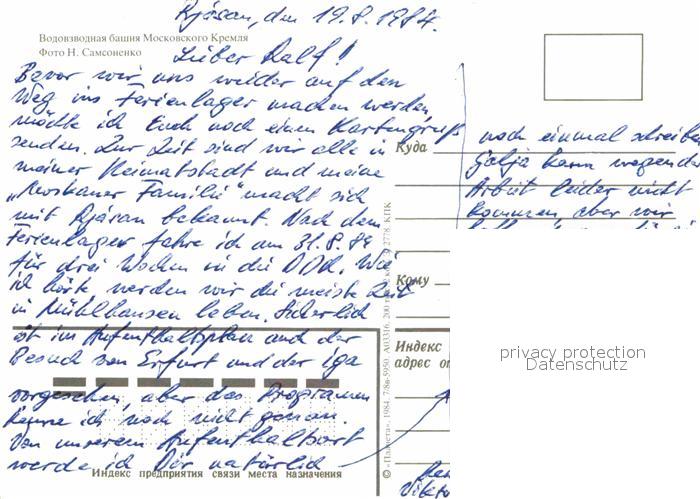 Rjasan, den 19.8.1984.
Водовзводная башня Московского Кремля
Фото Н. Самсоненко
Lieber Ralf!
Bevor wir uns weider auf den
Weg ins Ferienlager machen werden,
möchte ich Euch noch einen Kartengruß
senden. Zur Zeit sind wir alle in
meiner Heimatstadt und meine
„Moskauer Familie" macht sich
mit Rjasan bekannt. Nach dem
Ferienlager fahre ich am 31.8.84
für drei Wochen in die DDR. Wie
ich hörte werden wir die meiste Zeit
in Mühlhausen leben. Sicherlich
ist im Aufenthaltsplan auch der
Besuch von Erfurt und der iga
vorgesehen, aber das Programm
kenne ich noch nicht genau.
Von unserem Aufenthaltsort
werde ich Dir natürlich
Индекс предприятия связи места назначения
© «Планета». 1984. 7/8в-5950. А03316. 200 2778. КПК
noch einmal schreiben
Куда
Galja kann wegen der
Arbeit leider nicht
kommen, aber wir
Кому
Индекс
адрес от
privacy protection
Datenschutz